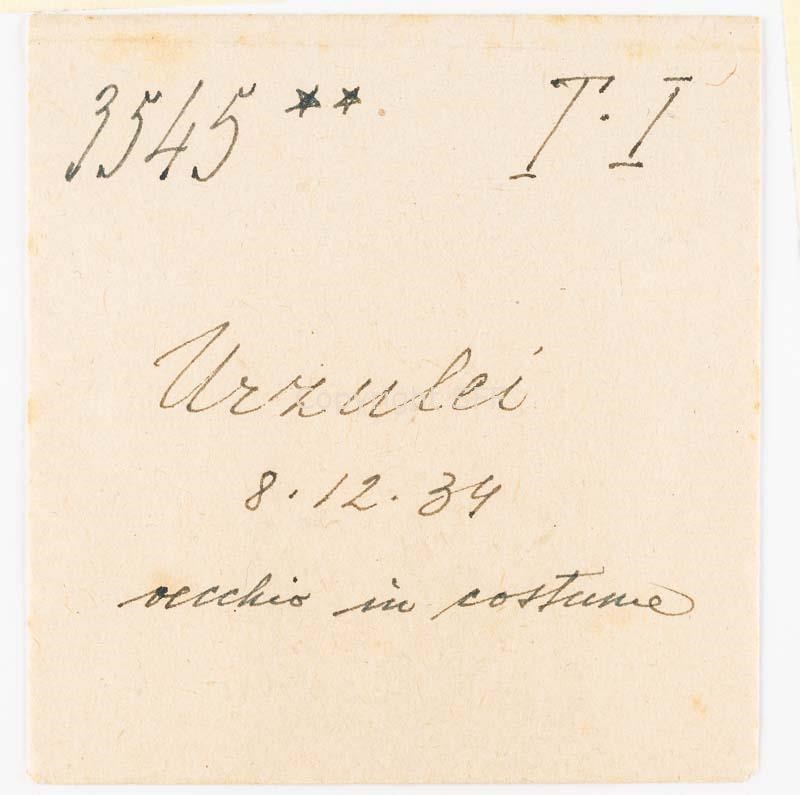 3545 ** T. I
Urzulei
8.12.34
vecchio in costume